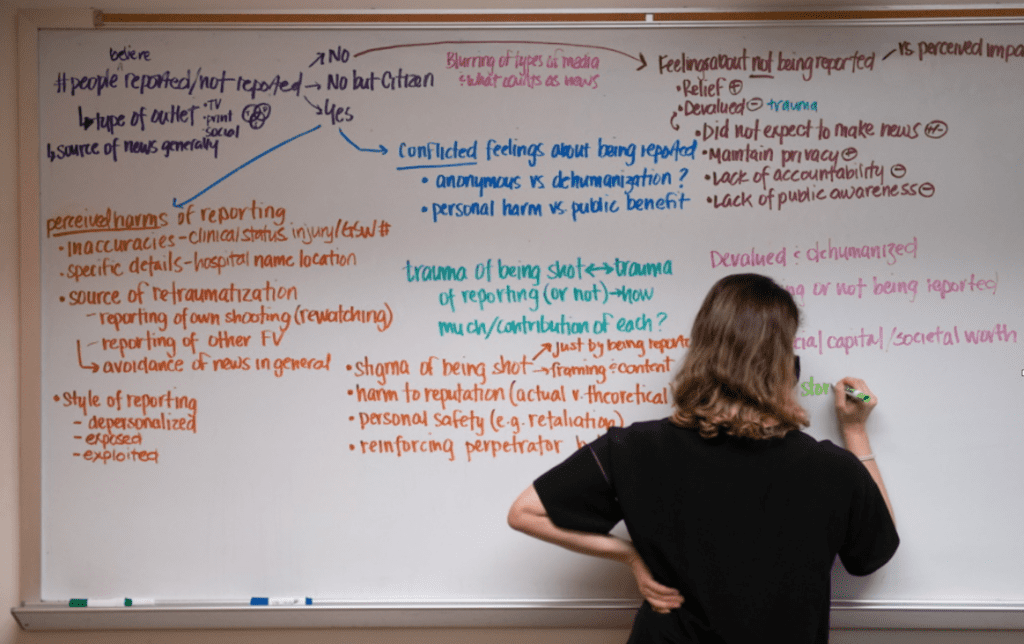 believe
# people reported/not reported
→ No
→ No but Citizen
→ Yes
↳ type of outlet • TV
• print
social
↳ source of news generally
Blurring of types of media
& what counts as news
Feelings about not being reported
vs perceived impa
• Relief +
• Devalued - trauma
• Did not expect to make news +/-
• Maintain privacy +
• Lack of accountability -
• Lack of public awareness -
conflicted feelings about being reported
• anonymous vs dehumanization?
• personal harm vs. public benefit
perceived harms of reporting
• Inaccuracies - clinical status, injury/GSW #
• specific details - hospital name location
• source of retraumatization
- reporting of own shooting (rewatching)
- reporting of other FV
→ avoidance of news in general
• Style of reporting
- depersonalized
- exposed
- exploited
trauma of being shot ↔ trauma
of reporting (or not) → how
much/contribution of each?
• stigma of being shot
→ just by being reporte
→ framing & content
• harm to reputation (actual v. theoretical)
• personal safety (e.g. retaliation)
• reinforcing perpetrator
Devalued & dehumanized
or not being reported
cial capital/societal worth
stor